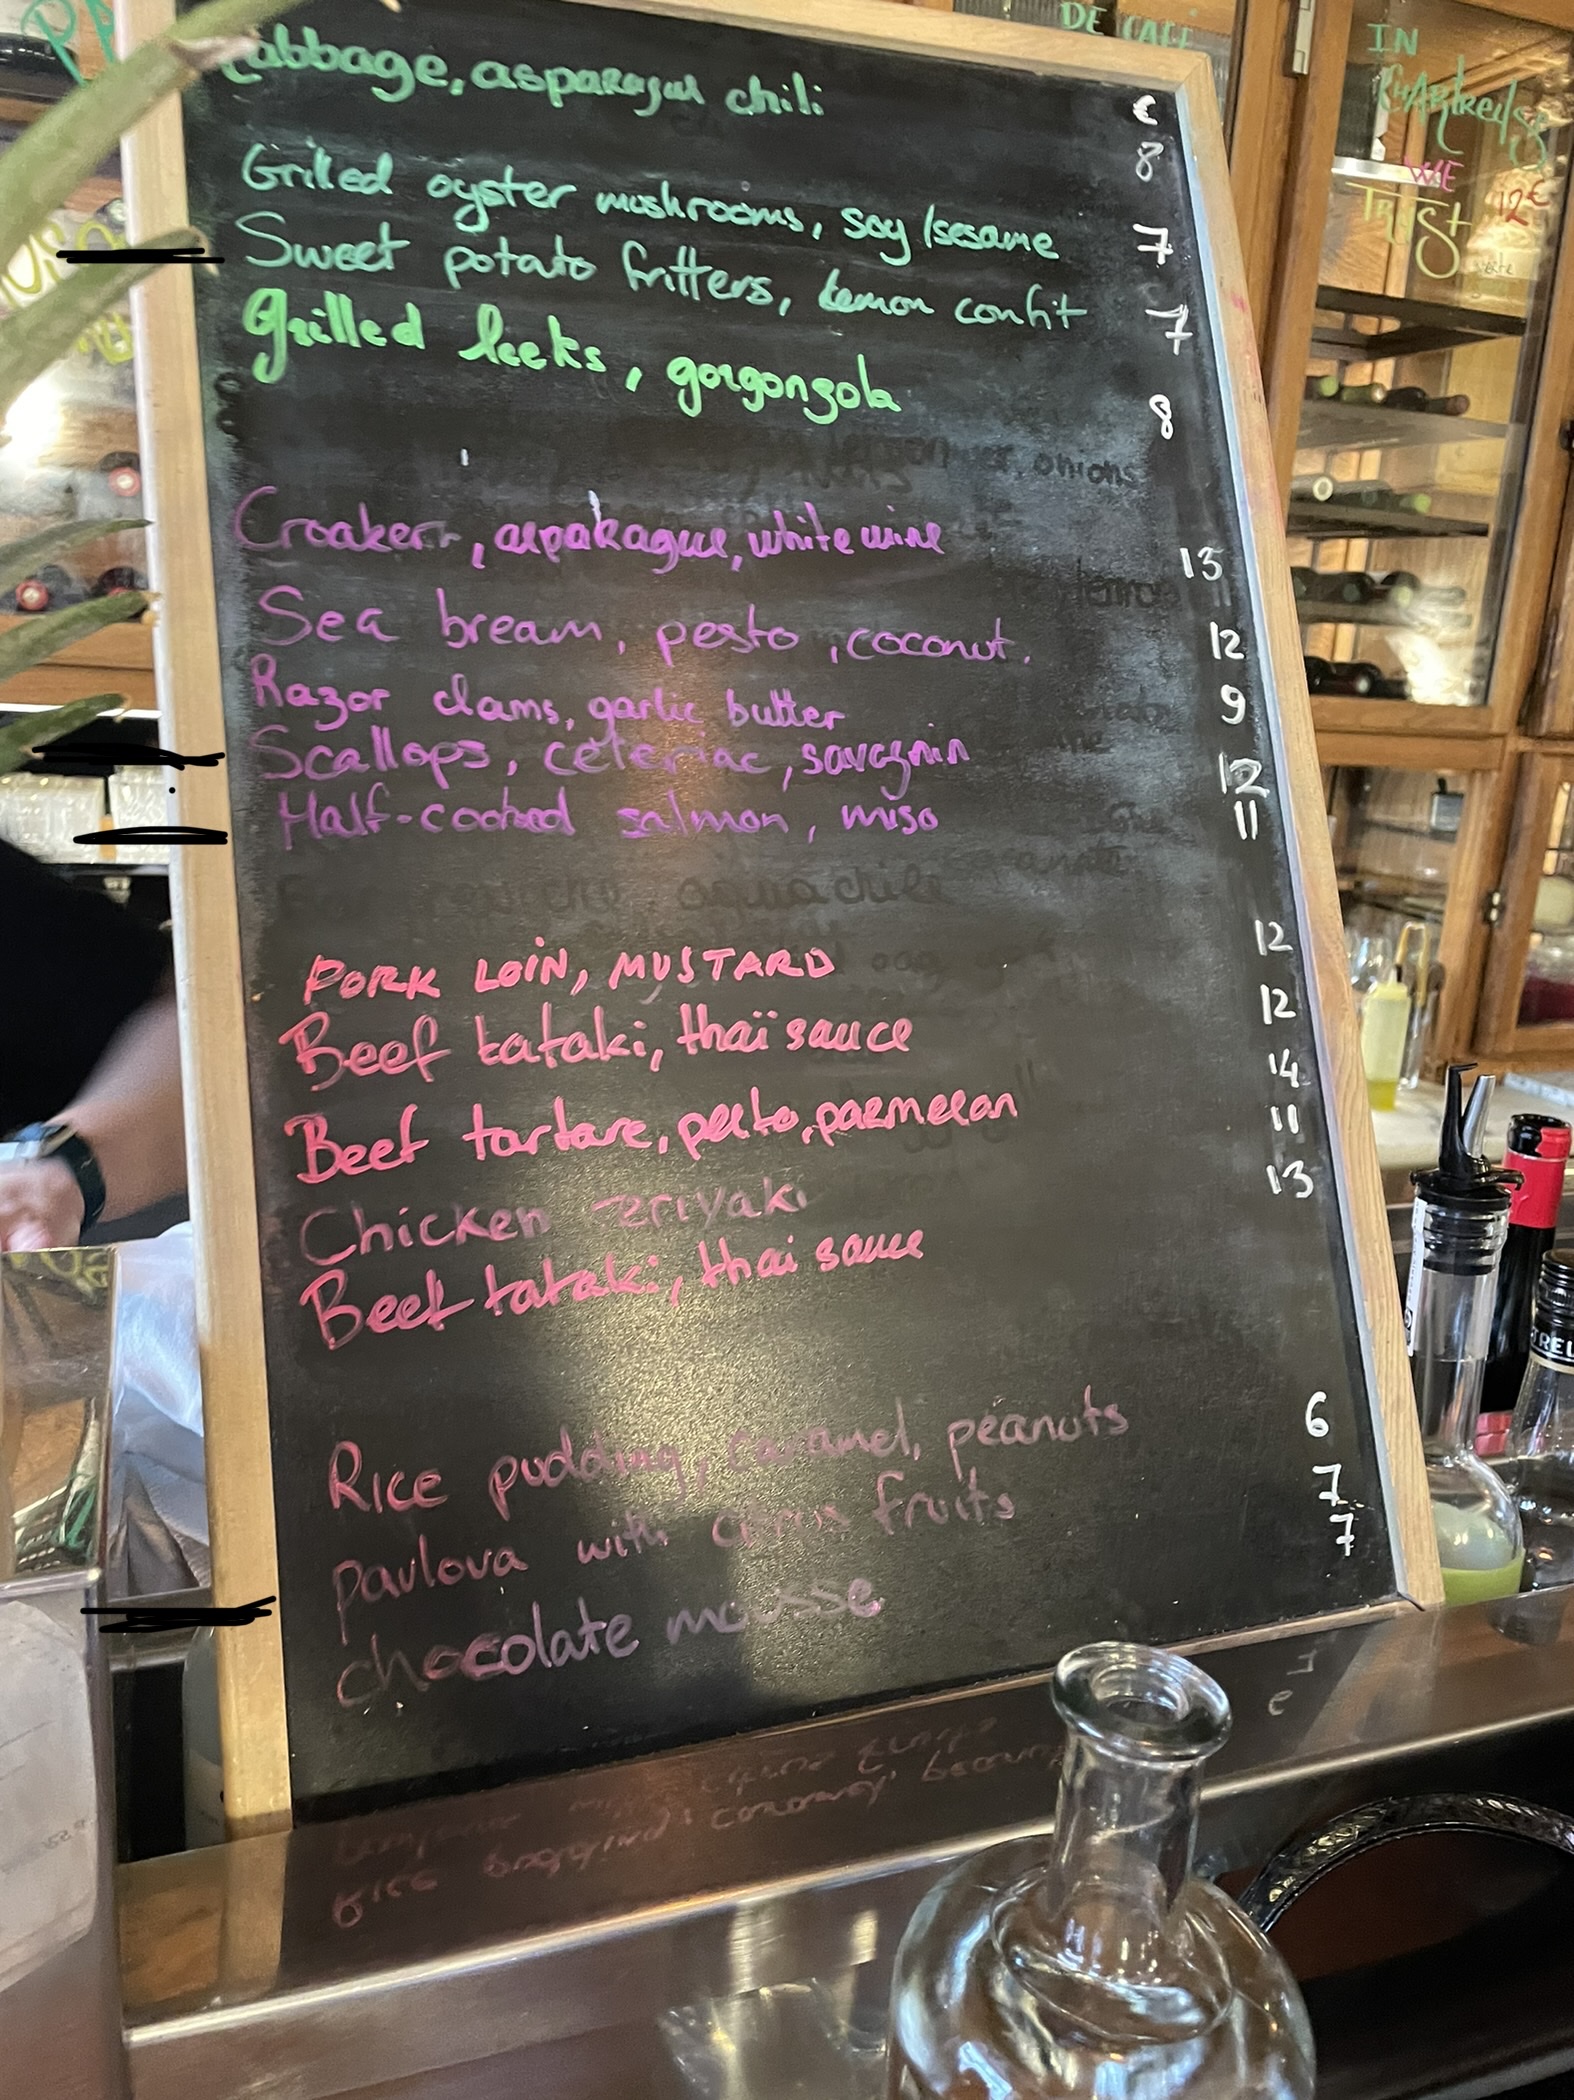 DE CAFÉ
IN
CHARTREUSE
WE
TRUST
12€
Cabbage, asparagus chili
€
8
Grilled oyster mushrooms, soy/sesame 7
Sweet potato fritters, lemon confit 7
Grilled leeks, gorgonzola 8
onions
Croaker, asparagus, white wine 13
Sea bream, pesto, coconut. 12
Razor clams, garlic butter 9
Scallops, céleriac, savagnin 12
Half-cooked salmon, miso 11
aguachile
PORK LOIN, MUSTARD 12
Beef tataki, thaï sauce 12
Beef tartare, pesto, parmesan 14
Chicken teriyaki 11
Beef tataki, thai sauce 13
Rice pudding, caramel, peanuts 6
pavlova with citrus fruits 7
chocolate mousse 7